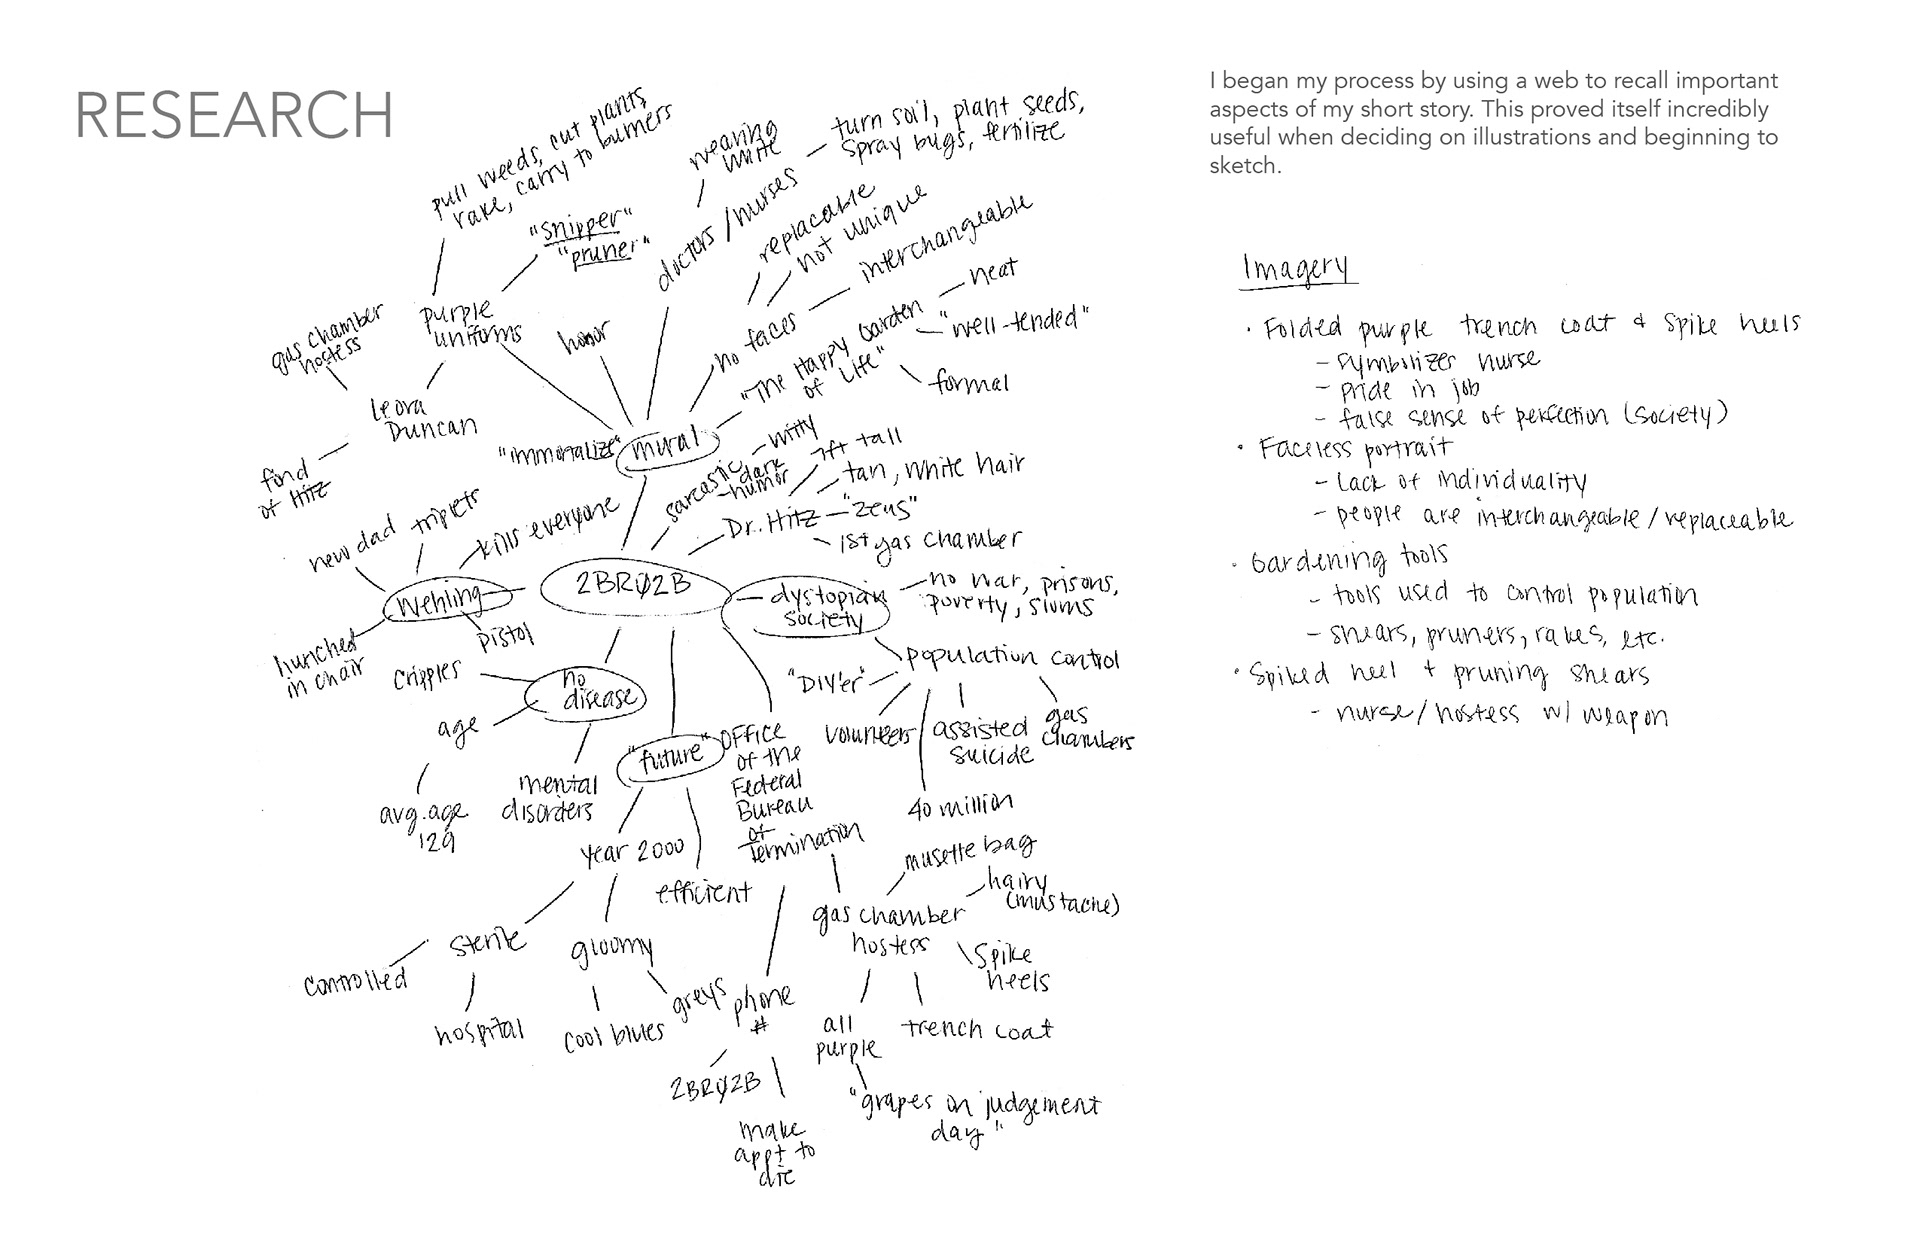 RESEARCH
I began my process by using a web to recall important
aspects of my short story. This proved itself incredibly
useful when deciding on illustrations and beginning to
sketch.
pull weeds, cut plants,
rake, carry to burners
"snipper"
"pruner"
purple
uniforms
gas chamber
hostess
Leora
Duncan
fond
of Hitz
honor
wearing
white
doctors/nurses
turn soil, plant seeds,
spray bugs, fertilize
replacable
not unique
interchangeable
no faces
"The Happy Garden
of Life"
neat
"well-tended"
formal
"immortalize"
mural
sarcastic
witty
dark
humor
7ft tall
tan, white hair
Dr. Hitz
"Zeus"
1st gas chamber
new dad
triplets
kills everyone
Wehling
hunched
in chair
pistol
2BRØ2B
dystopian
society
no war, prisons,
poverty, slums
population control
"DIY'er"
volunteers
assisted
suicide
gas
chambers
40 million
no
disease
cripples
age
avg. age
129
mental
disorders
"future"
year 2000
efficient
sterile
controlled
hospital
gloomy
cool blues
greys
Office
of the
Federal
Bureau
of
Termination
phone
#
2BRØ2B
make
appt to
die
gas chamber
hostess
musette bag
hairy
(mustache)
spike
heels
trench coat
all
purple
"grapes on judgement
day"
Imagery
· Folded purple trench coat & spike heels
- symbolizes nurse
- pride in job
- false sense of perfection (society)
· Faceless portrait
- Lack of individuality
- people are interchangeable/replaceable
· Gardening tools
- tools used to control population
- shears, pruners, rakes, etc.
· Spiked heel + pruning shears
- nurse/hostess w/ weapon